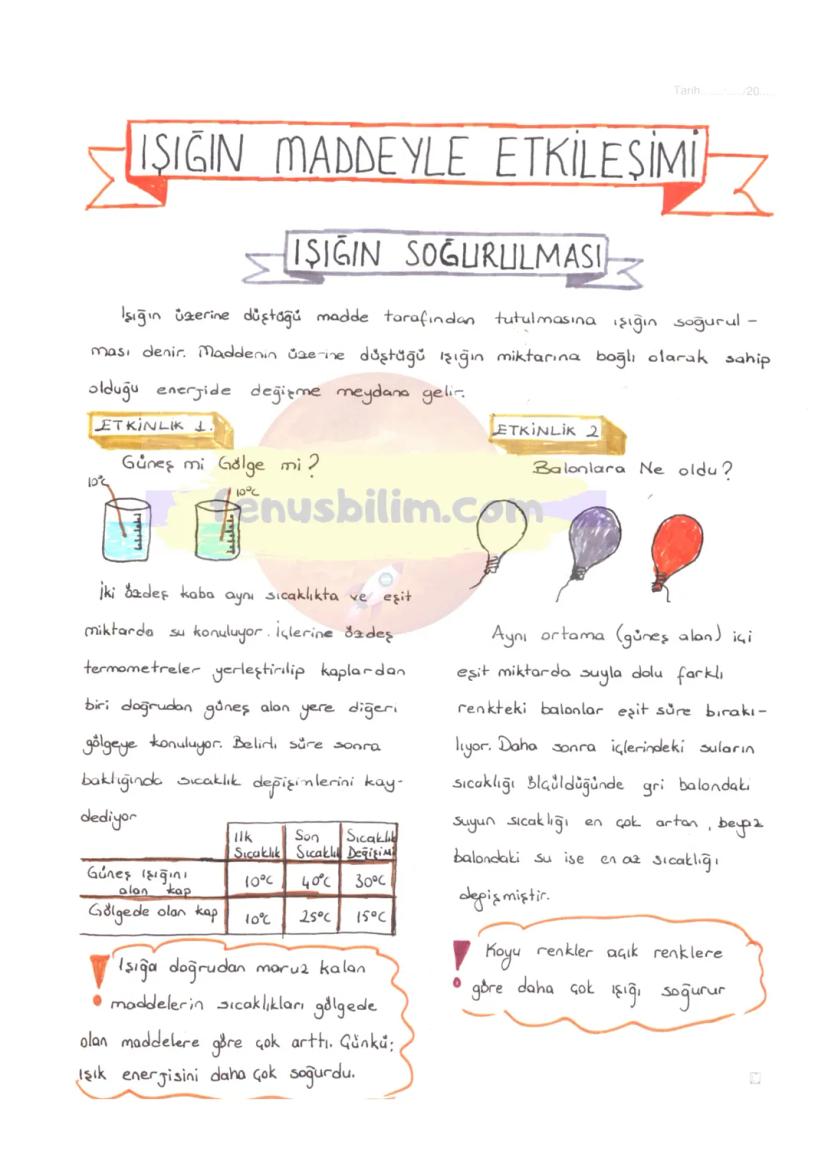 Tarih ....../....../20......
IŞIĞIN MADDEYLE ETKİLEŞİMİ
IŞIĞIN SOĞURULMASI
Işığın üzerine düştüğü madde tarafından tutulmasına ışığın soğurul -
ması denir. Maddenin üzerine düştüğü ışığın miktarına bağlı olarak sahip
olduğu enerjide değişme meydana gelir.
ETKİNLİK 1.
Güneş mi Gölge mi?
10°C
10°C
İki özdeş kaba aynı sıcaklıkta ve eşit
miktarda su konuluyor. İçlerine özdeş
termometreler yerleştirilip kaplardan
biri doğrudan güneş alan yere diğeri
gölgeye konuluyor. Belirli süre sonra
baktığında sıcaklık değişimlerini kay-
dediyor
İlk Sıcaklık
Son Sıcaklık
Sıcaklık Değişimi
Güneş ışığını alan kap
10°C
40°C
30°C
Gölgede olan kap
10°C
25°C
15°C
! Işığa doğrudan maruz kalan
maddelerin sıcaklıkları gölgede
olan maddelere göre çok arttı. Çünkü;
ışık enerjisini daha çok soğurdu.
ETKİNLİK 2
Balonlara Ne oldu?
fenusbilim.com
Aynı ortama (güneş alan) içi
eşit miktarda suyla dolu farklı
renkteki balonlar eşit süre bırakı-
lıyor. Daha sonra içlerindeki suların
sıcaklığı ölçüldüğünde gri balondaki
suyun sıcaklığı en çok artan, beyaz
balondaki su ise en az sıcaklığı
değişmiştir.
! Koyu renkler açık renklere
göre daha çok ışığı soğurur